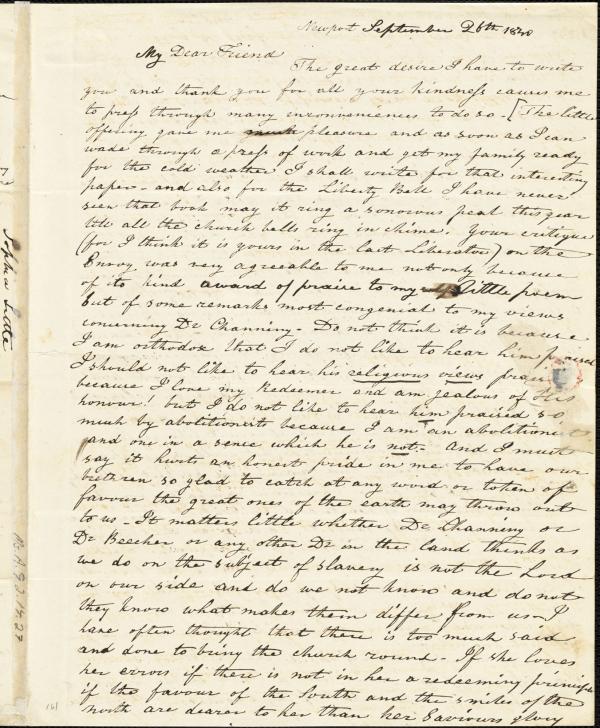 Newport September 26th 1840
My Dear Friend
The great desire I have to write
you and thank you for all your kindness causes me
to press through many inconveniences to do so - [The little
offering gave me much pleasure and as soon as I can
wade through a press of work and get my family ready
for the cold weather I shall write for that interesting
paper - and also for the Liberty Bell I have never
seen that book may it ring a sonorous peal this year
till all the church bells ring in chime. Your critique
(for I think it is yours in the last Liberator) on the
Envoy was very agreeable to me not only because
of its kind award of praise to my little poem
but of some remarks most congenial to my views
concerning Dr Channing - Do not think it is because
I am orthodox that I do not like to hear him praised
I should not like to hear his religious views
because I love my Redeemer and am jealous of His
honour! but I do not like to hear him praised so
much by abolitionists because I am an abolitionist
and one in a sence which he is not - And I must
say it hurts an honest pride in me to have our
brethren so glad to catch at any word or token of
favour the great ones of the earth may throw out
to us - It matters little whether Dr Channing or
Dr Beecher or any other Dr in the land thinks as
we do on the subject of slavery is not the Lord
on our side and do we not know and do not
they know what makes them differ from us - I
have often thought that there is too much said
and done to bring the church round - If she loves
her errors if there is not in her a redeeming principle
if the favour of the South and the smiles of the
north are dearer to her than her Saviours glory
Sophia Little
161